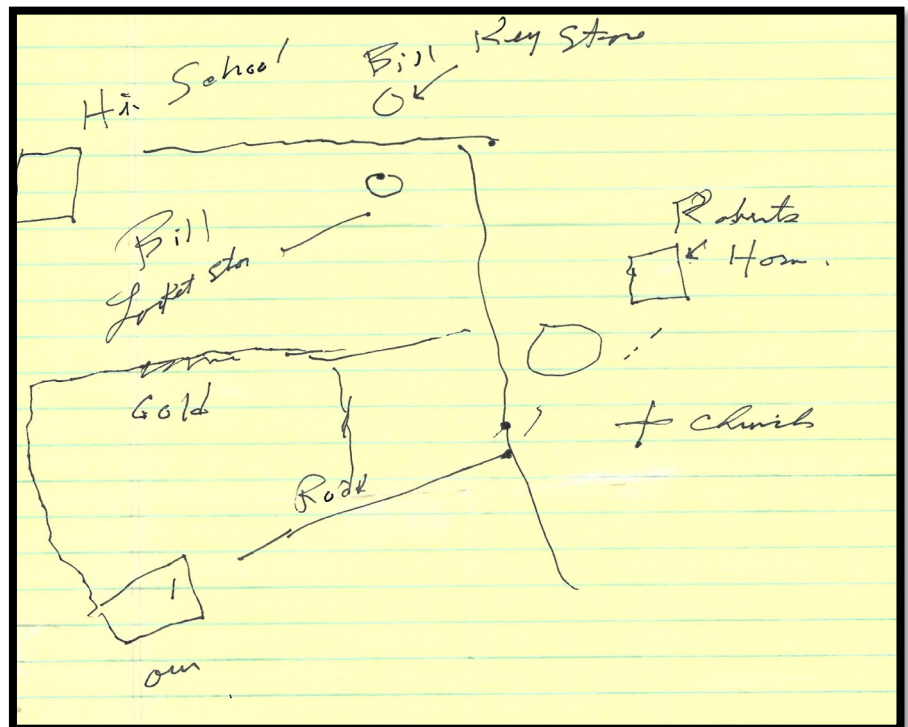 Hi School
Bill Key Stone
Bill
Roberts
Hom.
Gold
+ Church
Road
our